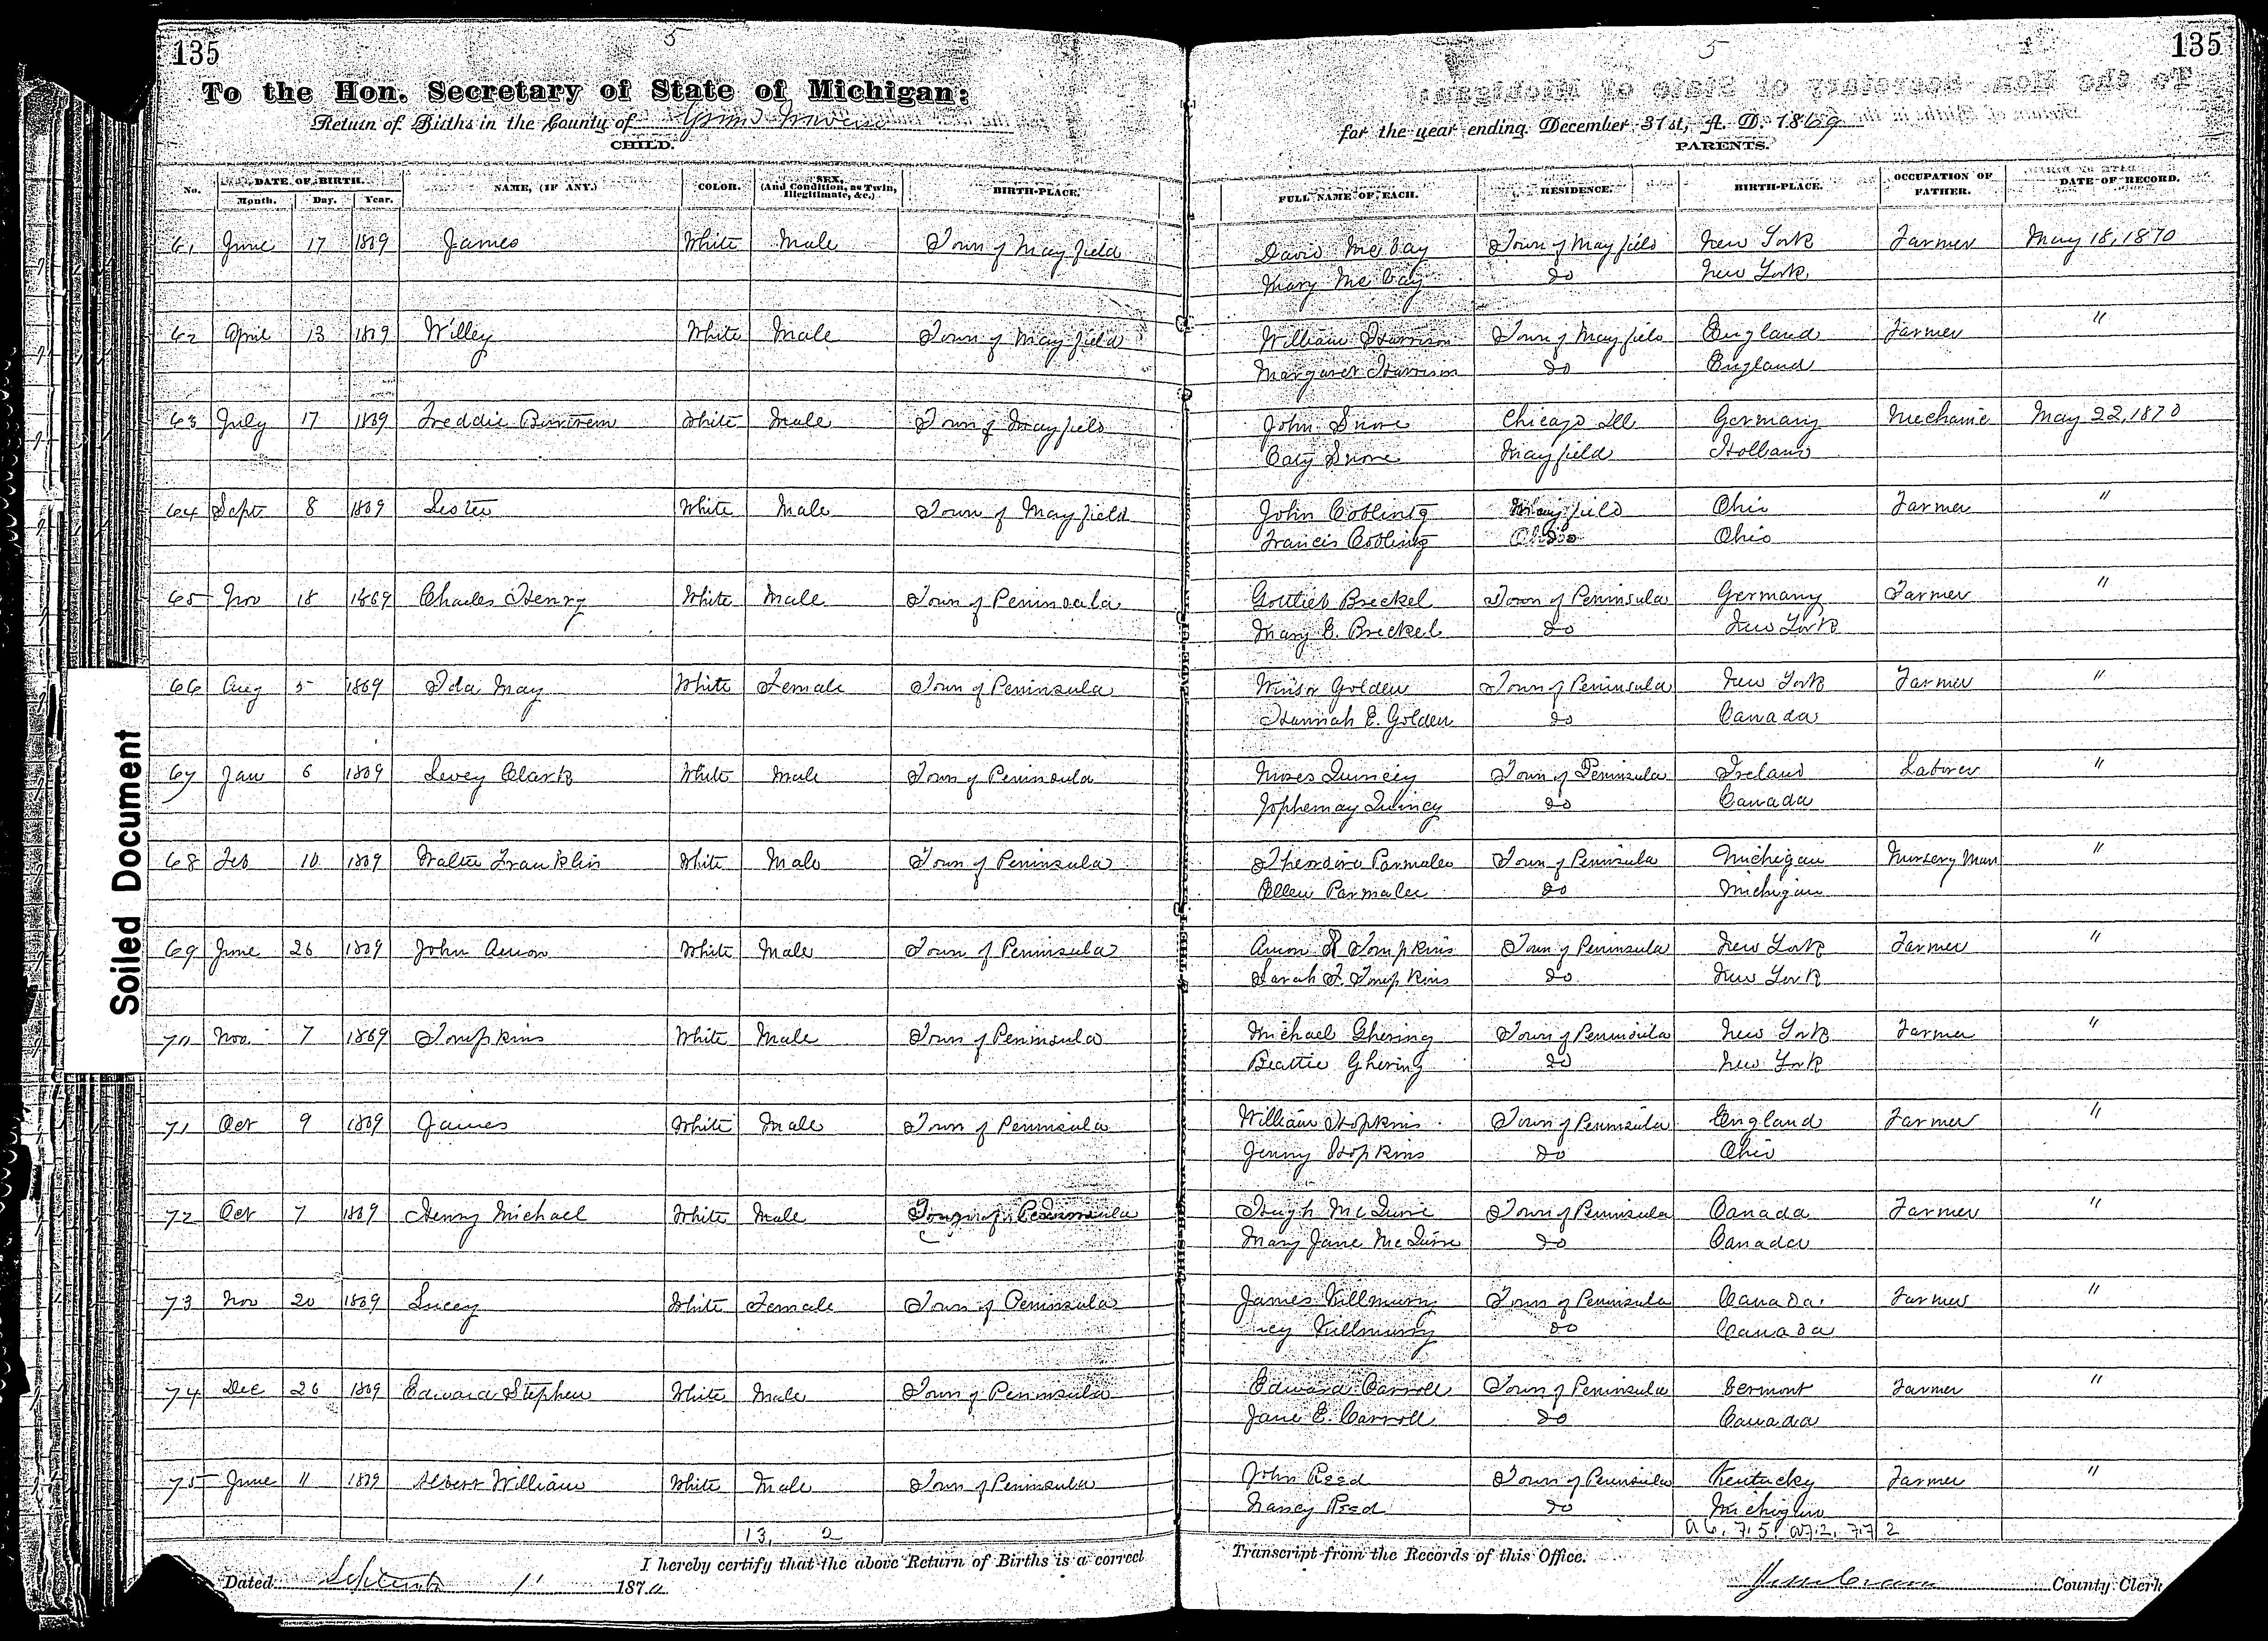 135
5
To the Hon. Secretary of State of Michigan:
Return of Births in the County of Grand Traverse
CHILD.
No. DATE OF BIRTH. NAME, (IF ANY.) COLOR. SEX, (And Condition, as Twin, Illegitimate, &c.) BIRTH-PLACE.
Month. Day. Year.
61 June 17 1869 James White Male Town of Mayfield
62 April 13 1869 Willey White Male Town of Mayfield
63 July 17 1869 Freddie White Male Town of Mayfield
64 Sept 8 1869 Lester White Male Town of Mayfield
65 Nov 18 1869 Charles Henry White Male Town of Peninsula
66 Aug 5 1869 Ida May White Female Town of Peninsula
67 Jan 6 1869 Levey Clark White Male Town of Peninsula
68 Feb 10 1869 Walter Franklin White Male Town of Peninsula
69 June 26 1869 John Amon White Male Town of Peninsula
70 Nov. 7 1869 Tompkins White Male Town of Peninsula
71 Oct 9 1869 James White Male Town of Peninsula
72 Oct 7 1869 Henry Michael White Male Town of Peninsula
73 Nov 20 1869 Lucey White Female Town of Peninsula
74 Dec 26 1869 Edward Stephen White Male Town of Peninsula
75 June 11 1869 Albert William White Male Town of Peninsula
13, 2
I hereby certify that the above Return of Births is a correct
Dated 1' 1870
Soiled Document
5
135
for the year ending December 31st, A. D. 1869
PARENTS.
FULL NAME OF EACH. RESIDENCE. BIRTH-PLACE. OCCUPATION OF FATHER. DATE OF RECORD.
David McCay Town of Mayfield New York Farmer May 18, 1870
Mary McCay do New York
William Harrison Town of Mayfield England Farmer "
Margaret Harrison do England
John Snow Chicago Ill Germany Mechanic May 22, 1870
Caty Snow Mayfield Holland
John Mayfield Ohio Farmer "
Francis do Ohio
Gottlieb Breckel Town of Peninsula Germany Farmer "
Mary E. Breckel do New York
Winsor Golden Town of Peninsula New York Farmer "
Hannah E. Golden do Canada
Moses Quincey Town of Peninsula Ireland Laborer "
Jophemay Quincy do Canada
Theodore Parmalee Town of Peninsula Michigan Nursery Man "
Ellen Parmalee do Michigan
Amon R Tompkins Town of Peninsula New York Farmer "
Sarah F. Tompkins do New York
Michael Ghering Town of Peninsula New York Farmer "
Beattie Ghering do New York
William Hopkins Town of Peninsula England Farmer "
Jenny Hopkins do Ohio
Hugh Town of Peninsula Canada Farmer "
Mary Jane do Canada
James Killmurry Town of Peninsula Canada Farmer "
Killmurry do Canada
Edward Carroll Town of Peninsula Vermont Farmer "
Jane E. Carroll do Canada
John Reed Town of Peninsula Kentucky Farmer "
Nancy Reed do Michigan
Transcript from the Records of this Office.
County Clerk